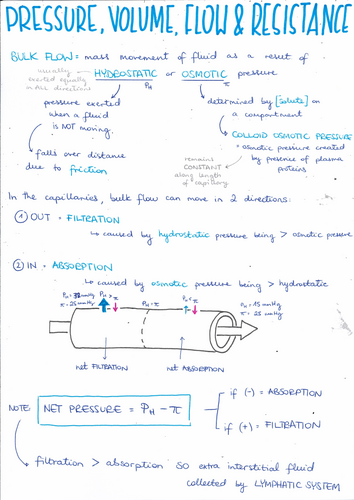 PRESSURE, VOLUME, FLOW & RESISTANCE
BULK FLOW = mass movement of fluid as a result of
HYDROSTATIC or OSMOTIC pressure
usually exerted equally in ALL directions
P_H
π
pressure exerted
when a fluid
is NOT moving.
falls over distance
due to friction
determined by [solute] on
a compartment
COLLOID OSMOTIC PRESSURE
= osmotic pressure created
by presence of plasma
proteins
remains
CONSTANT
along length
of capillary
In the capillaries, bulk flow can move in 2 directions:
① OUT = FILTRATION
↳ caused by hydrostatic pressure being > osmotic pressure
② IN = ABSORPTION
↳ caused by osmotic pressure being > hydrostatic
P_H > π
P_H = π
π = 25 mmHg
P_H = 15 mmHg
π = 25 mmHg
net FILTRATION
net ABSORPTION
NOTE:
NET PRESSURE = P_H - π
if (-) = ABSORPTION
if (+) = FILTRATION
filtration > absorption so extra interstitial fluid
collected by LYMPHATIC SYSTEM